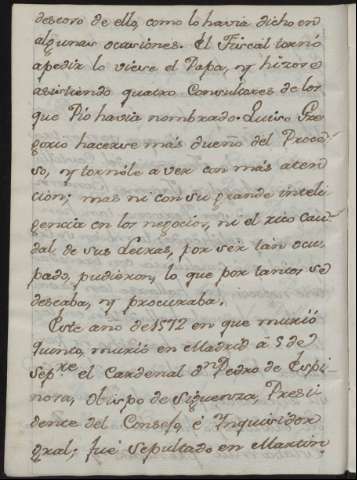 descoro de ello, como lo havia dicho en
algunas ocasiones. El Fiscal tornó
apedir lo viese el Papa, y hizose
asistiendo quatro Consultores de los
que Pio havia nombrado. Quiso Gre-
gorio hacerse más dueño del Proce-
so, y tornóle a ver con más aten-
ción; mas ni con su grande inteli-
gencia en los negocios, ni el rico cau-
dal de sus Letras, por ser tan ocu-
pado, pudieron, lo que por tantos se
deseaba, y procuraba.
Este año de 1572 en que murió
Quinto, murió en Madrid á 5 de
Sepre el Cardenal Dn Pedro de Espi-
nosa, Obispo de Siguenza, Presi-
dente del Consejo, é Inquisidor
gral; fué sepultado en Martin